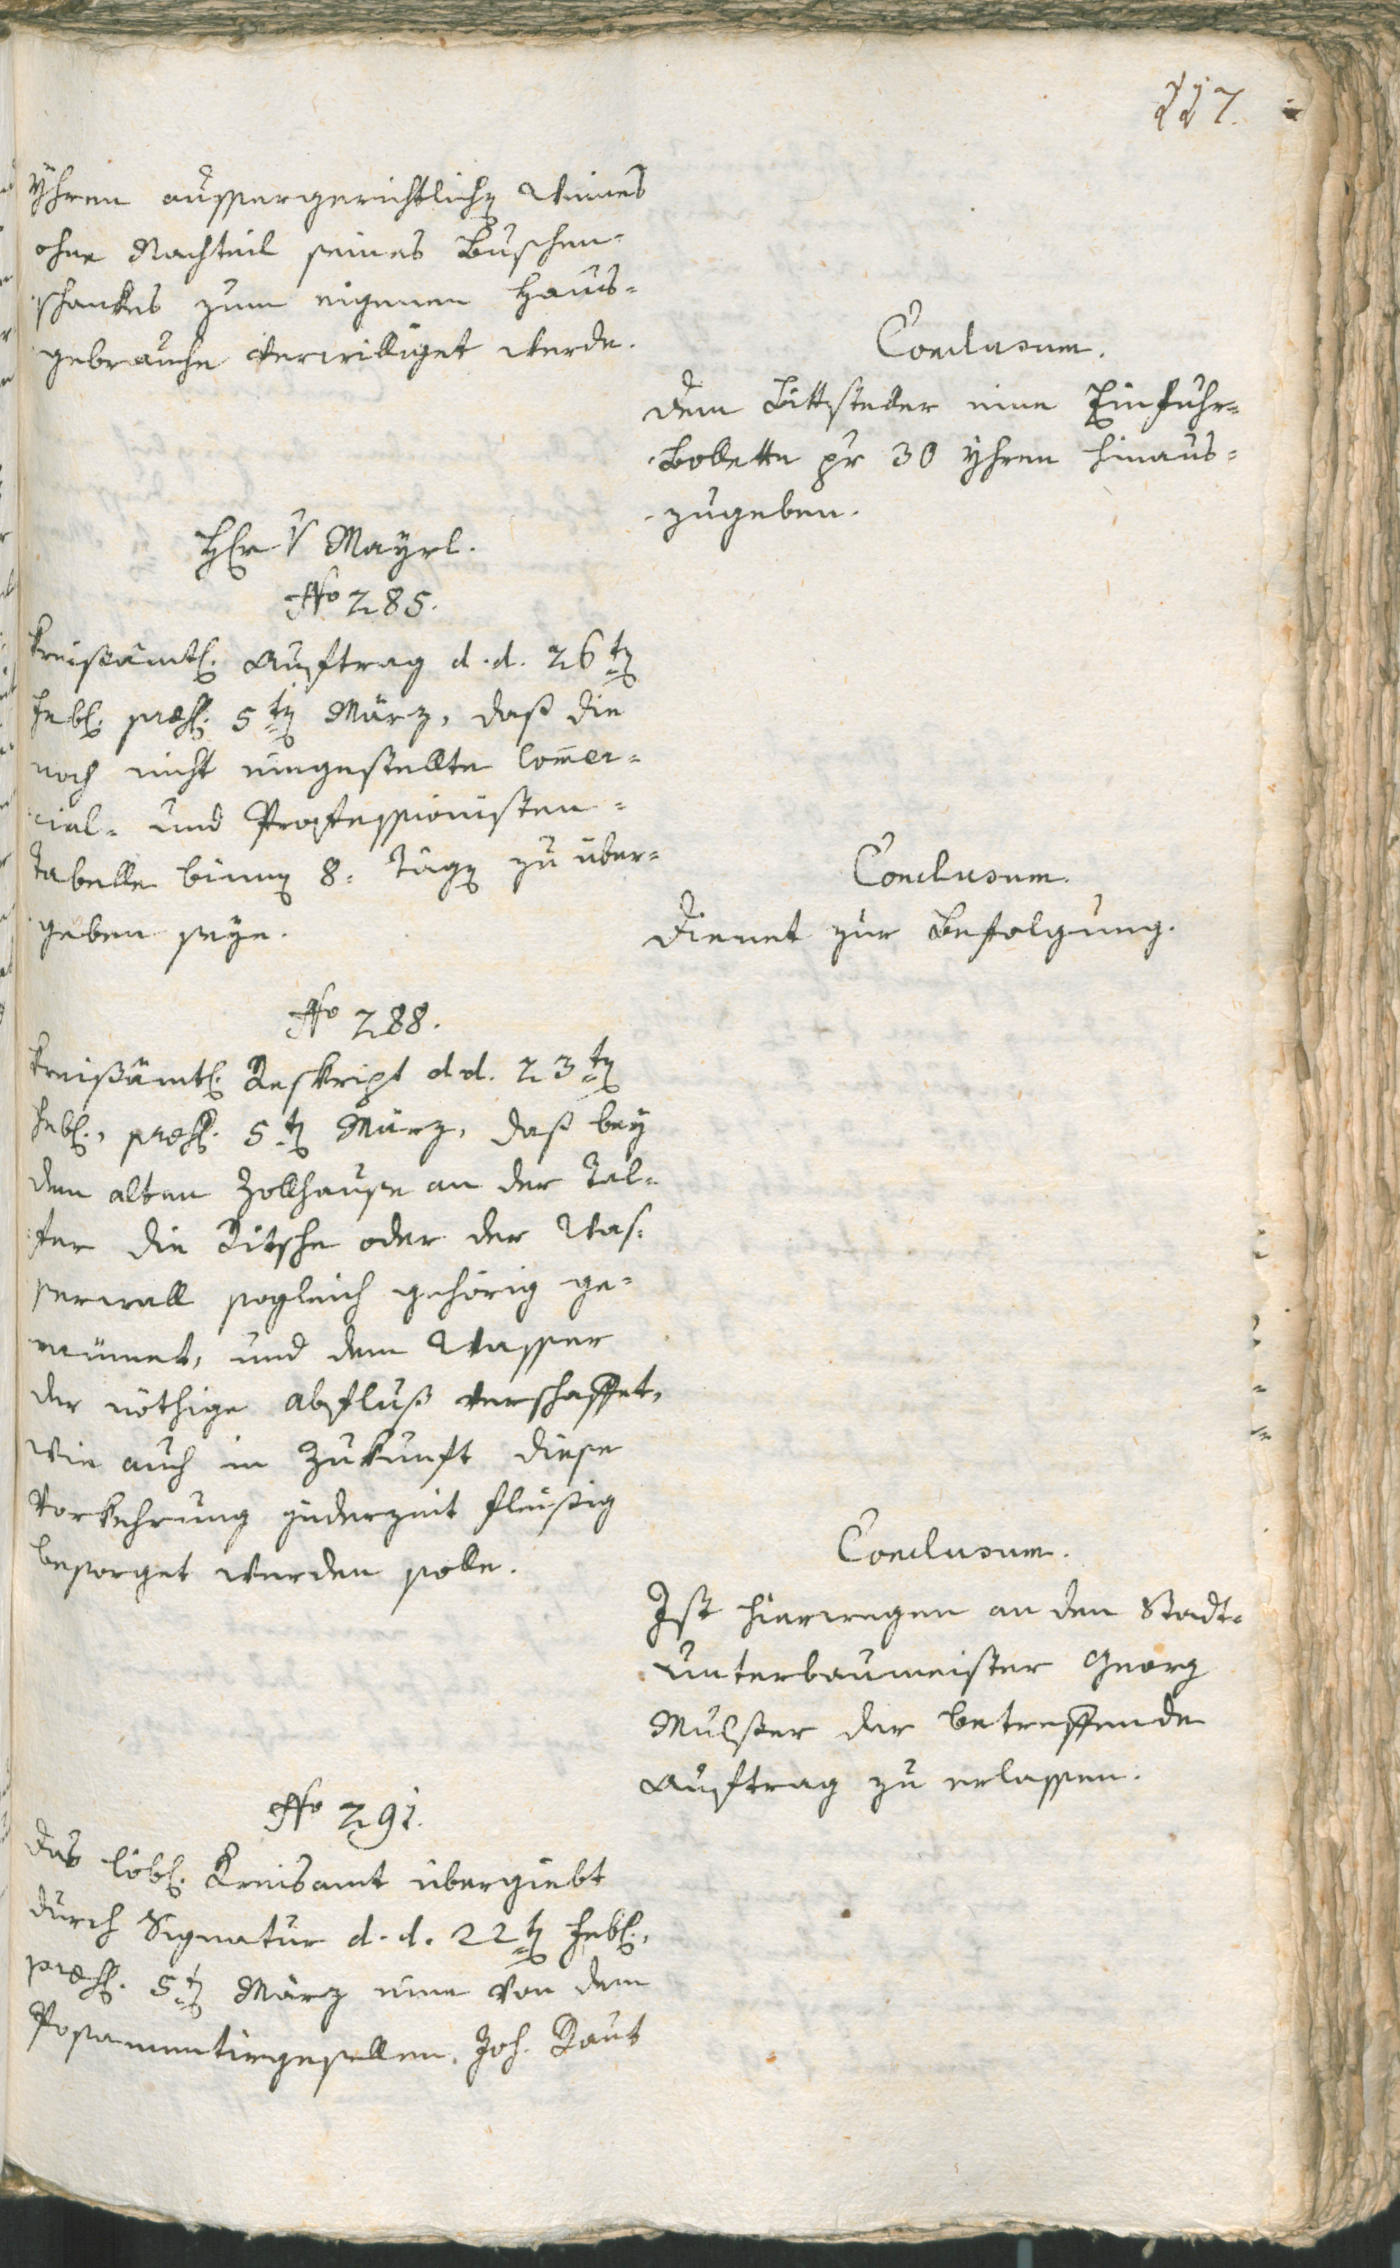 117.
Yhren aussergerichtlichen Weines
ohne Nachteil seines Buschen-
schankes zum eigenen Haus-
gebrauche verwilliget werde.
Conclusum.
Dem Bittsteller eine Einfuhr-
Bollette pr 30 Yhren hinaus-
zugeben.
Herr V Mayrl.
No 285.
Kreißämtl. Auftrag d. d. 26ten
Febr. praes. 5ten März, daß die
noch nicht eingestellte Com̄er-
cial- und Professionisten-
Tabelle binnen 8. Tagen zu über-
geben seye.
Conclusum.
Dienet zur Befolgung.
No 288.
Kreißämtl. Reskript dd. 23ten
Febr., praes. 5ten März, daß bey
dem alten Zollhause an der Tal-
fer die Ritsche oder der Was-
serwall sogleich gehörig ge-
raümet, und dem Wasser
der nöthige Abfluß verschaffet,
wie auch in Zukunft diese
Vorkehrung jederzeit fleißig
besorget werden solle.
Conclusum.
Ist hierwegen an den Stadt-
Unterbaumeister Georg
Mulser der betreffende
Auftrag zu erlassen.
No 291.
Das löbl. Kreisamt übergiebt
durch Signatur d. d. 22ten Febr.,
praes. 5ten März eine von dem
Posamentirgesellen Joh. Raut